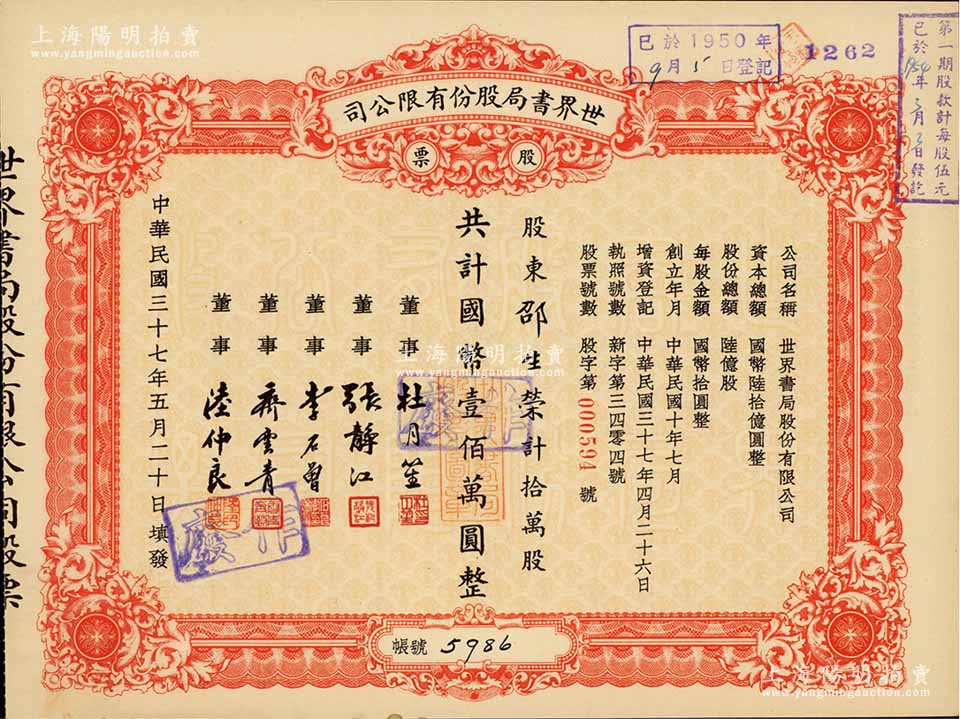 上海陽明拍賣
www.yangmingauction.com
已於1950年
9月5日登記
1262
第一期股款計每股伍元
世界書局股份有限公司
股票
公司名稱 世界書局股份有限公司
資本總額 國幣陸拾億圓整
股份總額 陸億股
每股金額 國幣拾圓整
創立年月 中華民國十年七月
增資登記 中華民國三十七年四月二十六日
執照號數 新字第三四零四號
股票號數 股字第0000594號
股東邵生榮計拾萬股
共計國幣壹佰萬圓整
董事 杜月笙
董事 張靜江
董事 李石曾
董事 齊雲青
董事 陸仲良
中華民國三十七年五月二十日填發
作廢
作廢
上海陽明拍賣
www.yangmingauction.com
帳號 5986
世界書局股份有限公司股票
上海陽明拍賣
www.yangmingauction.com